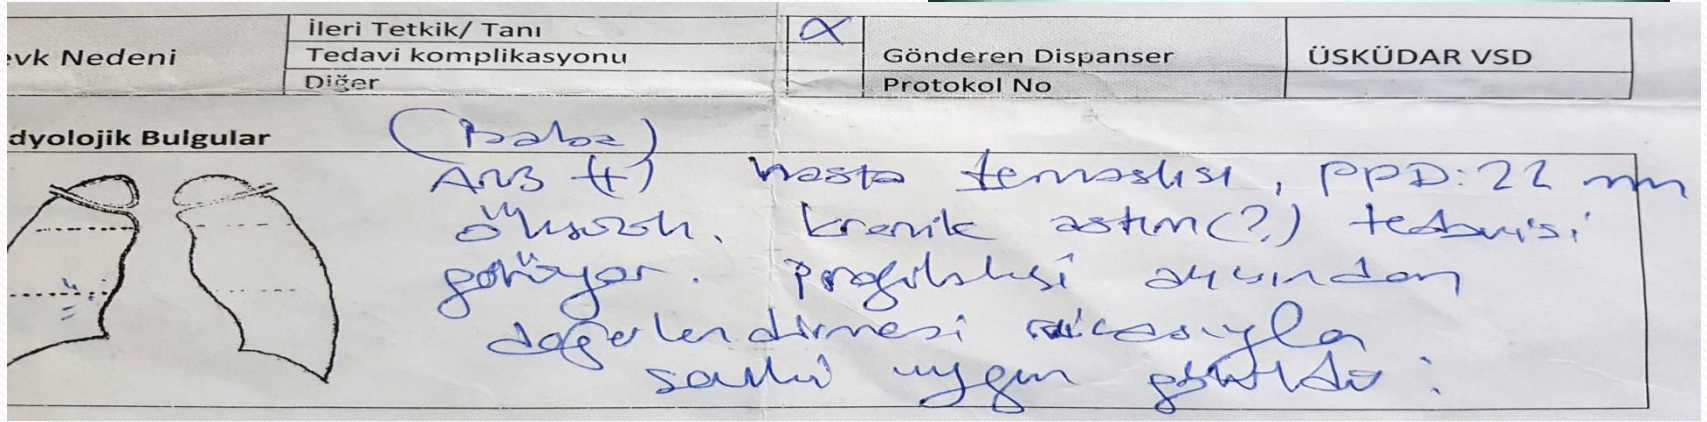 evk Nedeni
İleri Tetkik/ Tanı
Tedavi komplikasyonu
Diğer
Gönderen Dispanser ÜSKÜDAR VSD
Protokol No
dyolojik Bulgular
(Baba)
ARB (+) hasta temaslısı, PPD: 22 mm
kronik astım(?) tedavisi
görüyor. profilaksisi açısından
değerlendirmesi ricasıyla
sevki uygun görüldü.